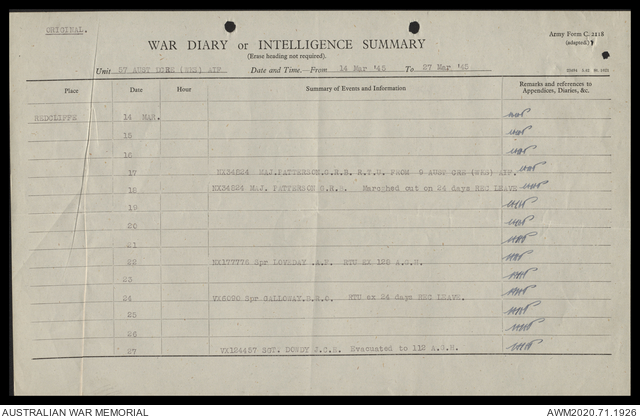 ORIGINAL.
Army Form C.2118
(adapted.)
WAR DIARY or INTELLIGENCE SUMMARY
(Erase heading not required).
Unit 57 AUST DCRE (WKS) AIF Date and Time.—From 14 Mar '45 To 27 Mar. '45
Place Date Hour Summary of Events and Information Remarks and references to
Appendices, Diaries, &c.
REDCLIFFE 14 MAR.
15
16
17 NX34824 MAJ. PATTERSON.G.H.S. R.T.U. FROM 9 AUST CRE (WKS) AIF.
18 NX34824 MAJ. PATTERSON G.H.S. Marched out on 24 days REC LEAVE
19
20
21
22 Spr LOVEDAY .A.F. RTU EX 128 A.G.H.
23
24 VX6000 Spr GALLOWAY. RTU ex 24 days REC LEAVE.
25
26
27 VX124437 SGT. DOWEY J.C.S. Evacuated to 112 A.G.H.
AUSTRALIAN WAR MEMORIAL AWM2020.71.1926